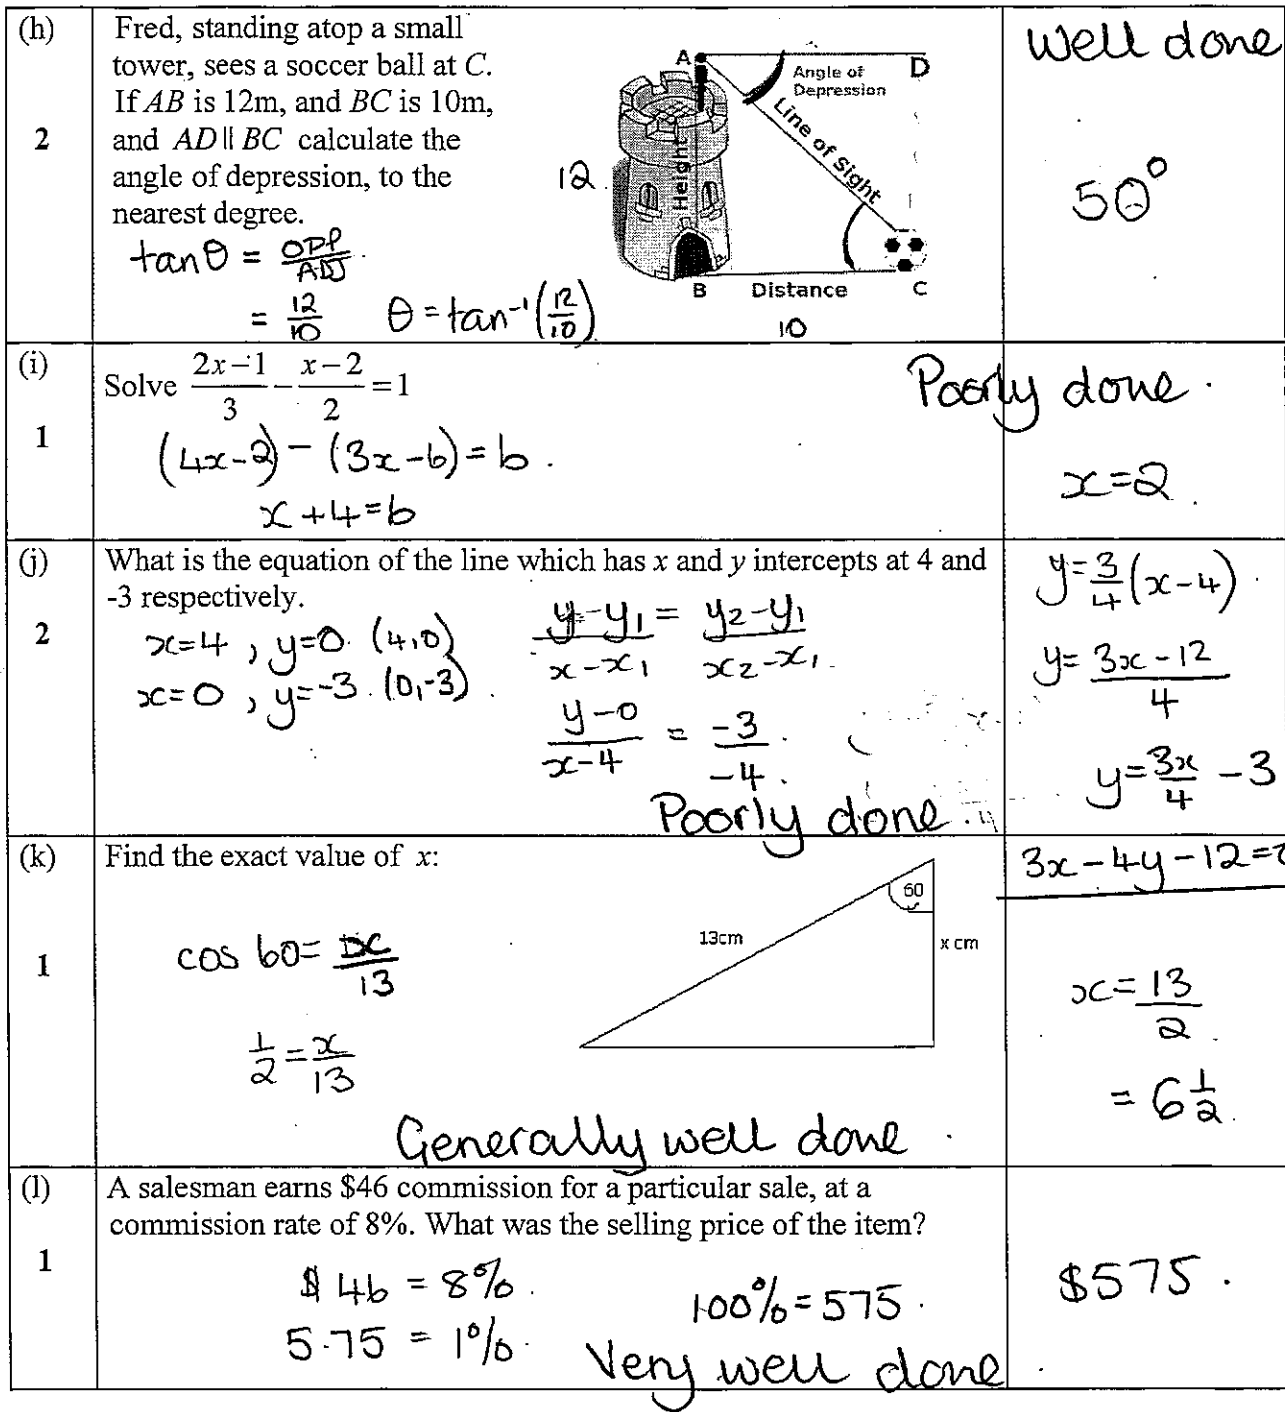 (h)
2
Fred, standing atop a small
tower, sees a soccer ball at C.
If AB is 12m, and BC is 10m,
and AD || BC calculate the
angle of depression, to the
nearest degree.
tanθ = OPP/ADJ
= 12/10 θ = tan⁻¹(12/10)
12
A
Angle of
Depression
D
Line of Sight
Height
B
Distance
C
10
Well done
50°
(i)
1
Solve (2x-1)/3 - (x-2)/2 = 1
(4x-2) - (3x-6) = 6.
x+4=6
Poorly done.
x=2.
(j)
2
What is the equation of the line which has x and y intercepts at 4 and
-3 respectively.
x=4, y=0. (4,0)
x=0, y=-3. (0,-3)
(y-y₁)/(x-x₁) = (y₂-y₁)/(x₂-x₁).
(y-0)/(x-4) = -3/-4.
Poorly done.
y=3/4(x-4)
y=(3x-12)/4
y=3x/4 -3
3x-4y-12=0
(k)
1
Find the exact value of x:
cos 60= x/13
1/2=x/13
60
13cm
x cm
Generally well done.
x=13/2.
= 6 1/2.
(l)
1
A salesman earns $46 commission for a particular sale, at a
commission rate of 8%. What was the selling price of the item?
$46 = 8%.
5.75 = 1%.
100%=575.
Very well done
$575.